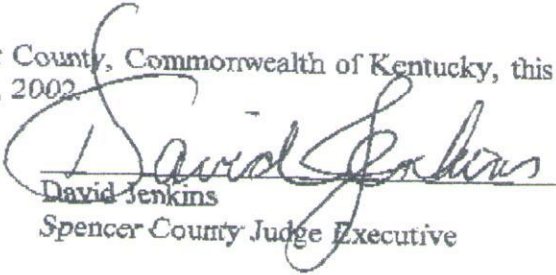 County, Commonwealth of Kentucky, this
2002.
David Jenkins
David Jenkins
Spencer County Judge Executive